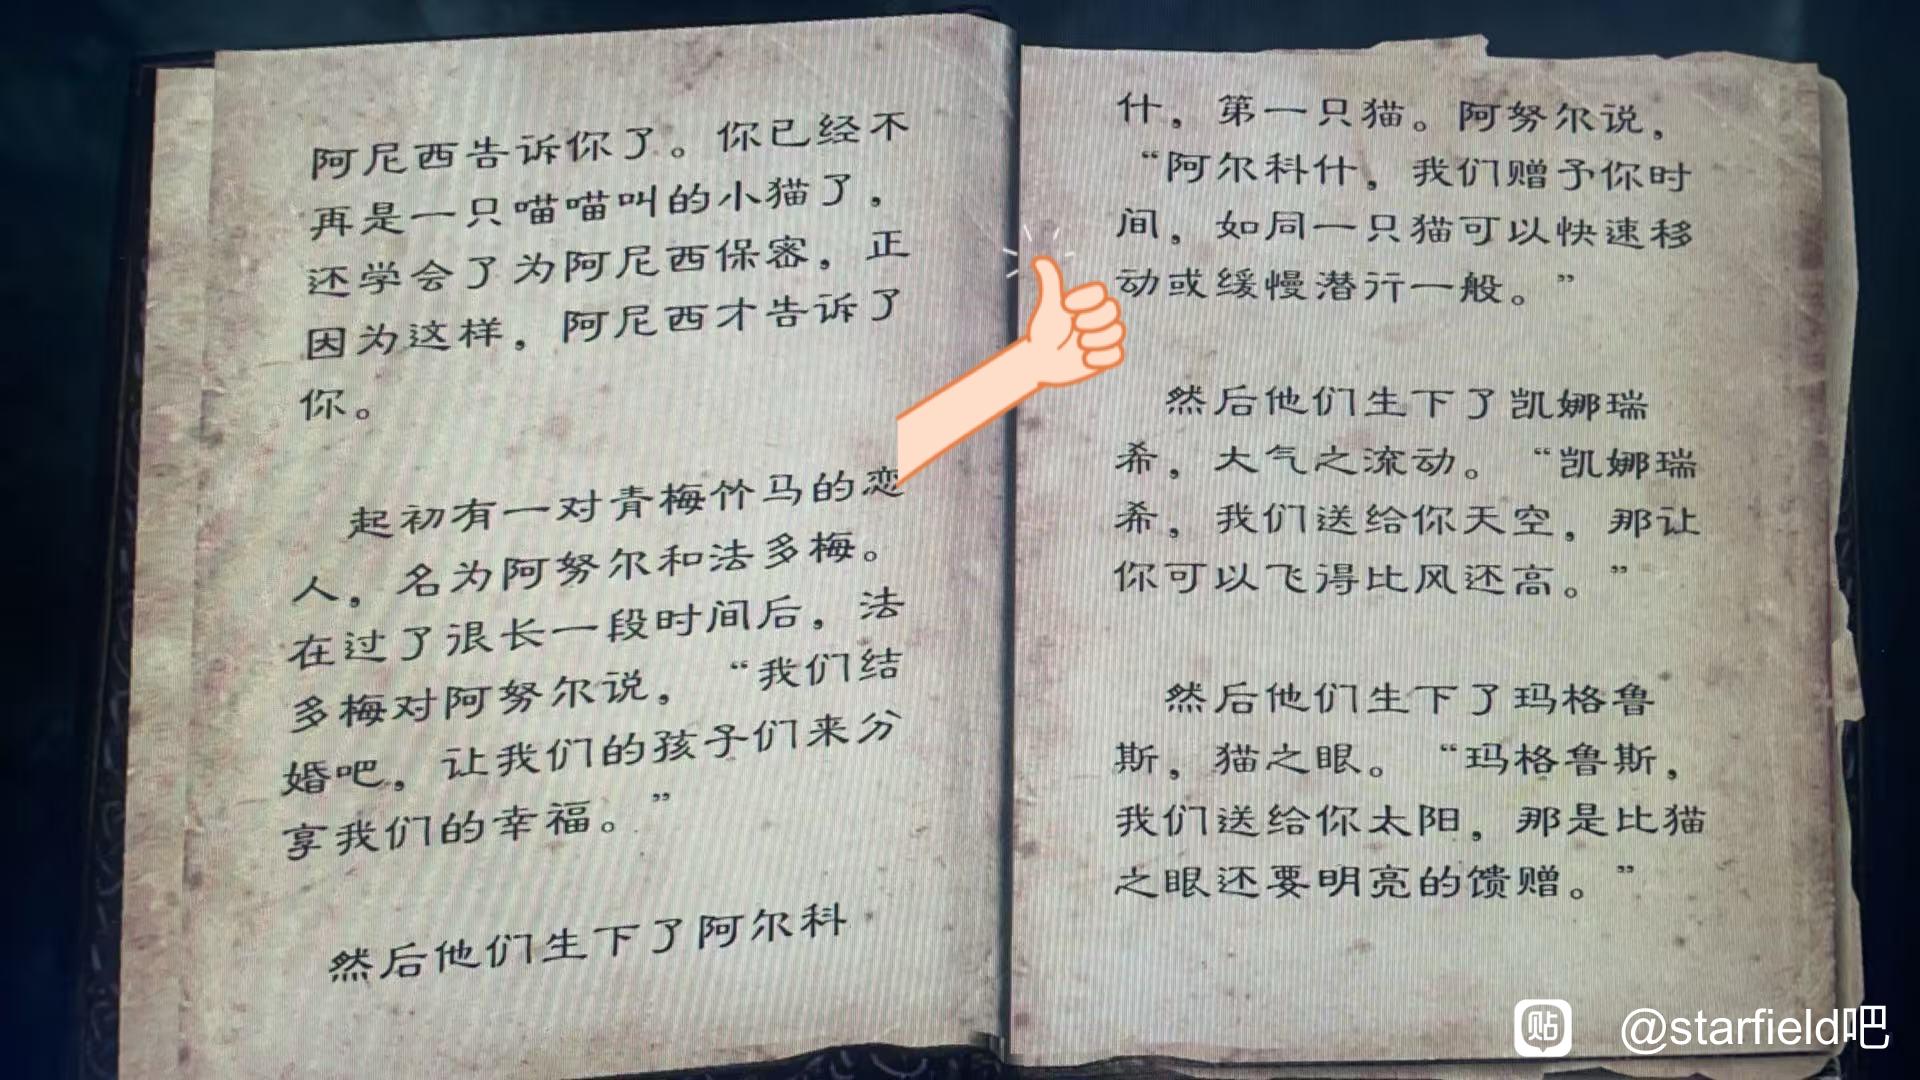 阿尼西告诉你了。你已经不
再是一只喵喵叫的小猫了，
还学会了为阿尼西保密，正
因为这样，阿尼西才告诉了
你。
起初有一对青梅竹马的恋
人，名为阿努尔和法多梅。
在过了很长一段时间后，法
多梅对阿努尔说，“我们结
婚吧，让我们的孩子们来分
享我们的幸福。”
然后他们生下了阿尔科
什，第一只猫。阿努尔说，
“阿尔科什，我们赠予你时
间，如同一只猫可以快速移
动或缓慢潜行一般。”
然后他们生下了凯娜瑞
希，大气之流动。“凯娜瑞
希，我们送给你天空，那让
你可以飞得比风还高。”
然后他们生下了玛格鲁
斯，猫之眼。“玛格鲁斯，
我们送给你太阳，那是比猫
之眼还要明亮的馈赠。”
贴 @starfield吧